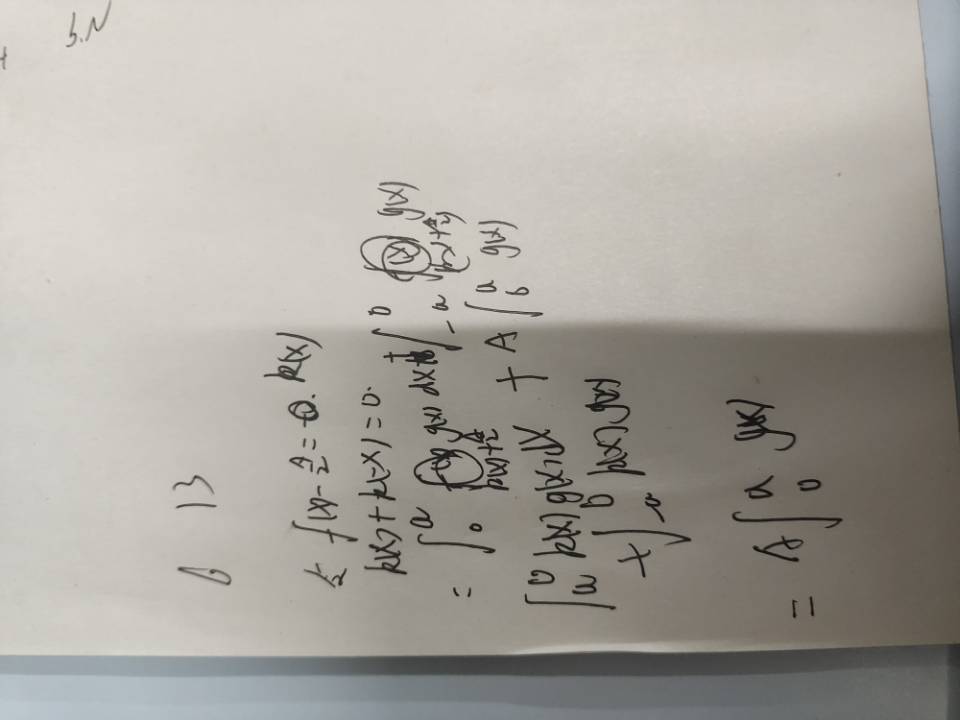 13
f(x) - A/2 = k(x)
k(x) + k(-x) = 0.
= ∫_0^a g(x) dx + ∫_{-a}^0 g(x)
k(x) + A/2 k(x) + A/2
k(x) g(x) dx + A ∫_0^a g(x)
+ ∫_{-a}^0 k(x) g(x)
= A ∫_0^a g(x)